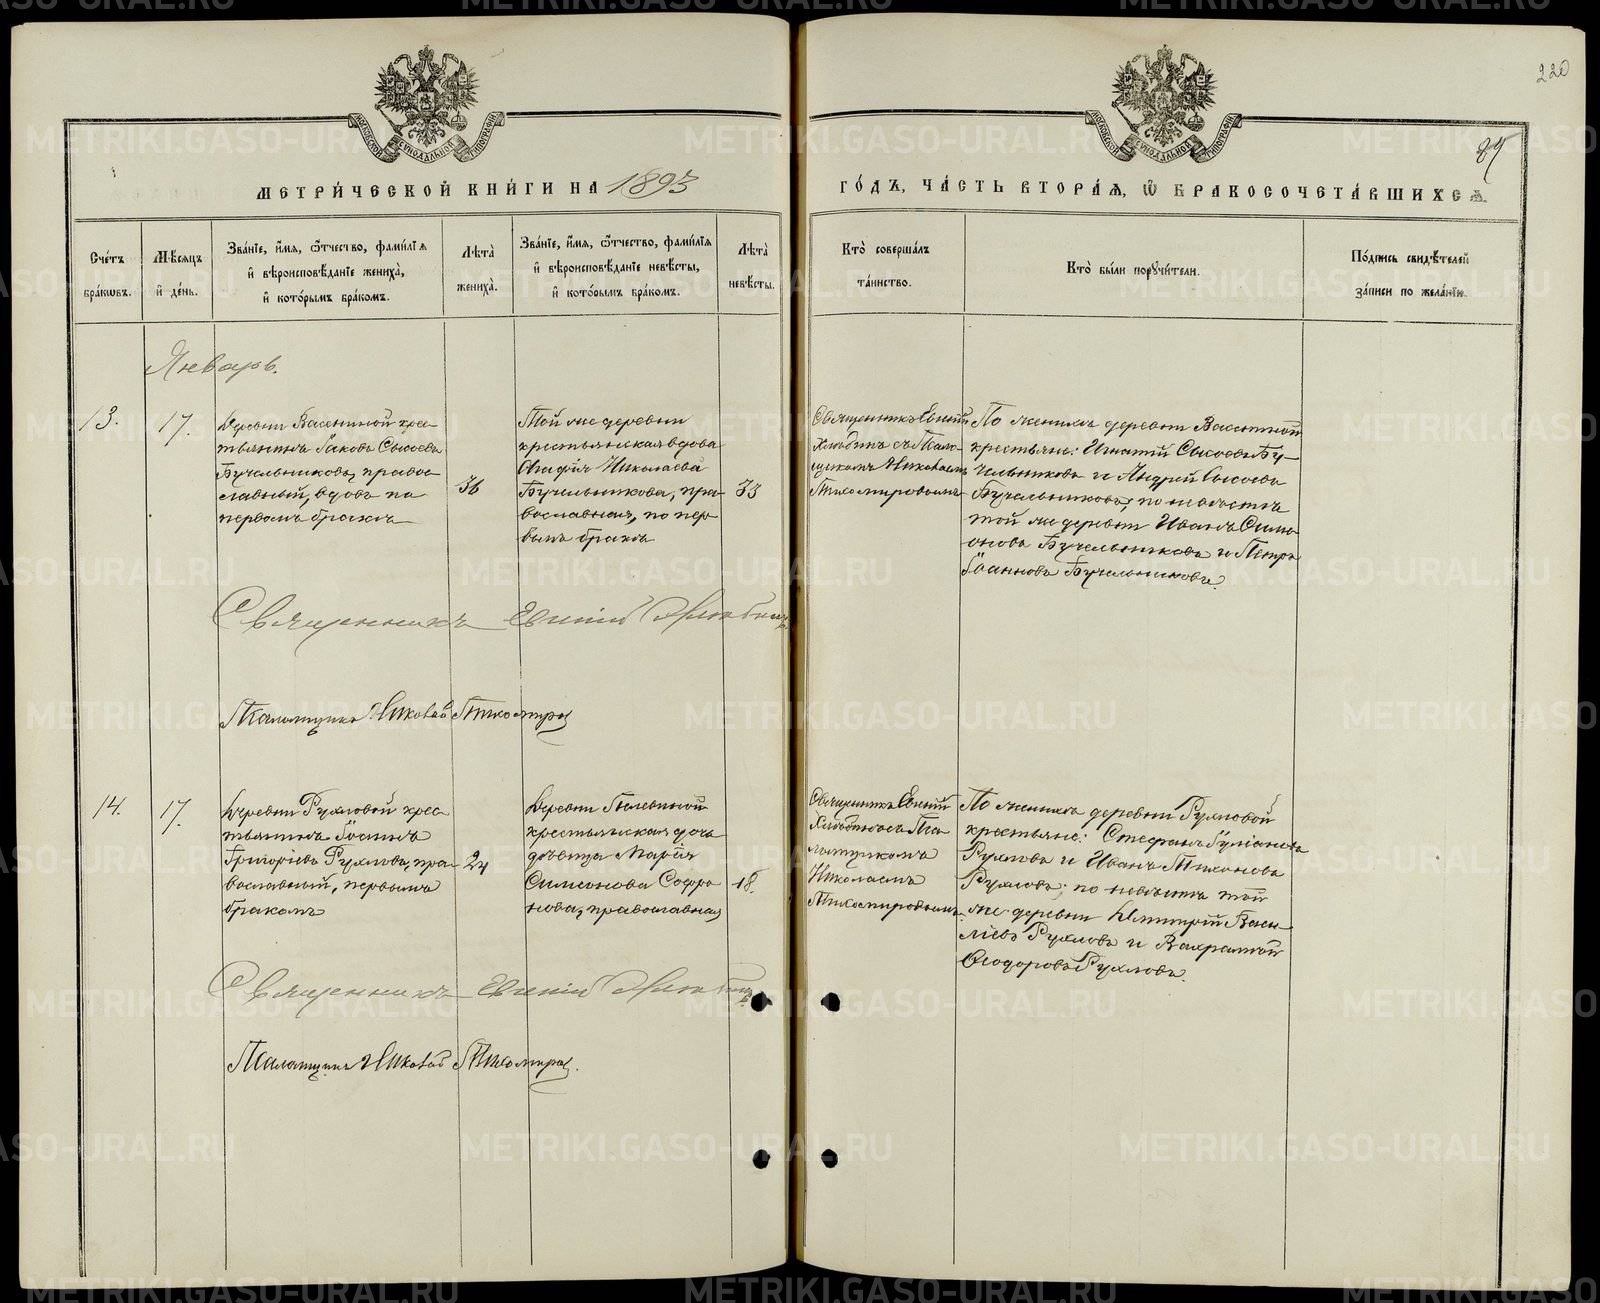 220
87
МОСКОВСКОЙ СѴНОДАЛЬНОЙ ТИПОГРАФІИ
МОСКОВСКОЙ СѴНОДАЛЬНОЙ ТИПОГРАФІИ
МЕТРИ́ЧЕСКОЙ КНИ́ГИ НА 1893 ГО́ДЪ, ЧА́СТЬ ВТОРА́Я, Ѽ БРАКОСОЧЕТА́ВШИХСЯ.
Сче́тъ
бра́кωвъ.
Мѣ́сяцъ
и҆ де́нь.
Зва́нїе, и҆́мя, ѻ҆́тчество, фами́лїя
и҆ вѣроисповѣ́данїе жениха̀,
и҆ кото́рымъ бра́комъ.
Лѣта̀
жениха̀.
Зва́нїе, и҆́мя, ѻ҆́тчество, фами́лїя
и҆ вѣроисповѣ́данїе невѣ́сты,
и҆ кото́рымъ бра́комъ.
Лѣта̀
невѣ́сты.
Кто̀ соверша́лъ
та́инство.
Кто̀ бы́ли поручи́тели.
По́дпись свидѣ́телей
за́писи по жела́нїю.
Январь.
13.
17.
Деревни Васениной крес-
тьянинъ Іаковъ Сысоевъ
Бучельниковъ, правос-
лавный, вдовъ по
первомъ бракѣ
36
Той же деревни
крестьянская вдова
Агафія Николаева
Бучельникова, пра-
вославная, по пер-
вомъ бракѣ
33
Священникъ Евгеній
Хлыбинъ съ Псало-
мщикомъ Николаемъ
Тихомировымъ
По женихѣ деревни Васениной
крестьяне: Игнатій Сысоевъ Бу-
чельниковъ и Андрей Сысоевъ
Бучельниковъ; по невѣстѣ
той же деревни Иванъ Симе-
оновъ Бучельниковъ и Петръ
Іоанновъ Бучельниковъ.
Священникъ Евгеній
Псаломщикъ Николай Тихомировъ
14.
17.
Деревни Рухловой крес-
тьянинъ Іоаннъ
Григоріевъ Рухловъ, пра-
вославный, первымъ
бракомъ
24
Деревни
крестьянская дочь
дѣвица Марія
Симеонова Софро-
нова, православная
18.
Священникъ Евгеній
съ Пса-
ломщикомъ
Николаемъ
Тихомировымъ.
По женихѣ деревни Рухловой
крестьяне: Стефанъ Іуліановъ
Рухловъ и Иванъ Тихоновъ
Рухловъ; по невѣстѣ той
же деревни Димитрій Васи-
ліевъ Рухловъ и Вахрамей
Ѳеодоровъ Рухловъ.
Священникъ Евгеній
Псаломщикъ Николай Тихомировъ.
METRIKI.GASO-URAL.RU